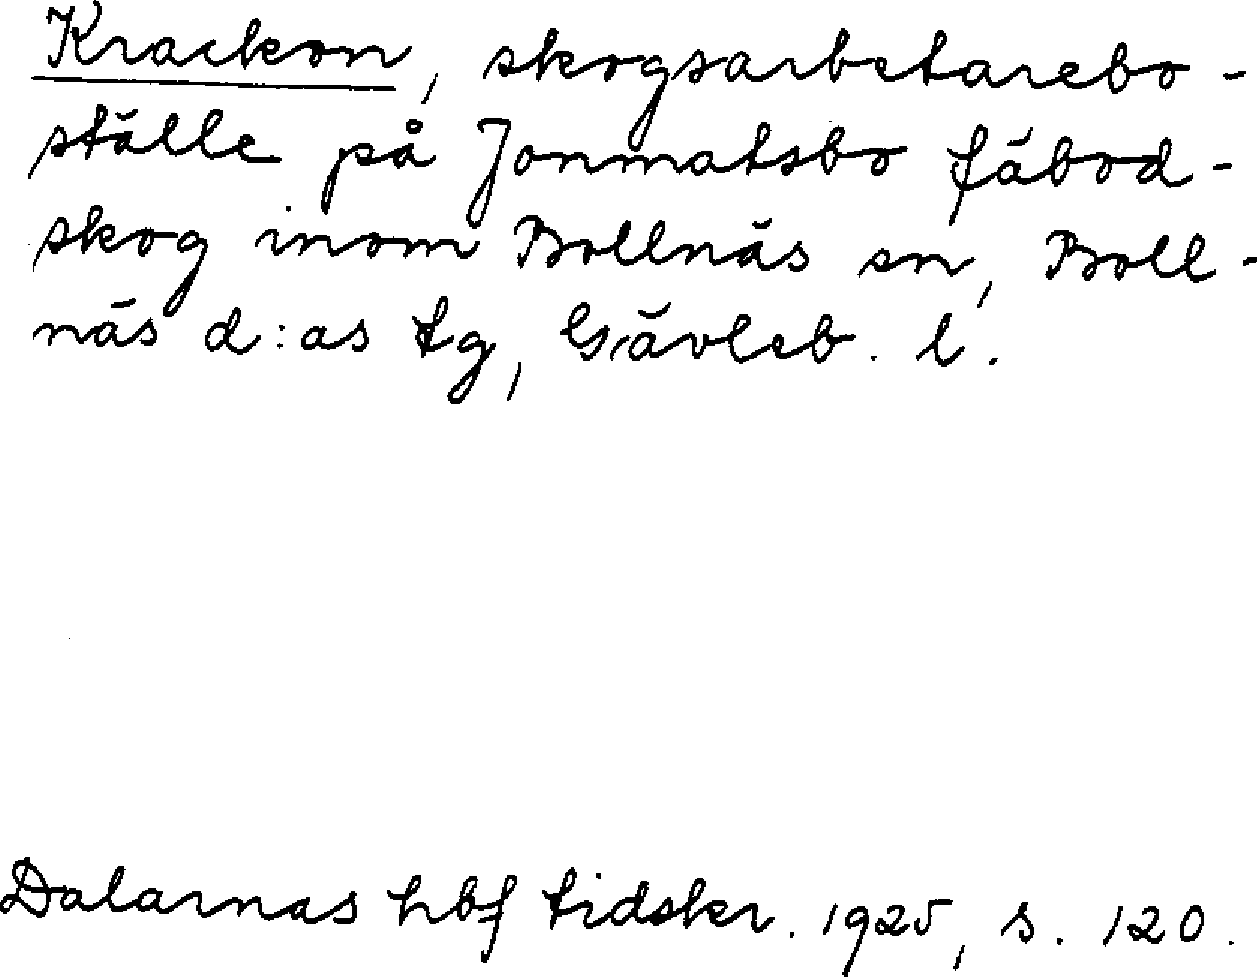 Krackon, skogsarbetarebo-
ställe på Jonmatsbo fäbod-
skog inom Bollnäs sn, Boll-
näs d:as tg, Gävleb. l.
Dalarnas hbf tidskr. 1925, s. 120.